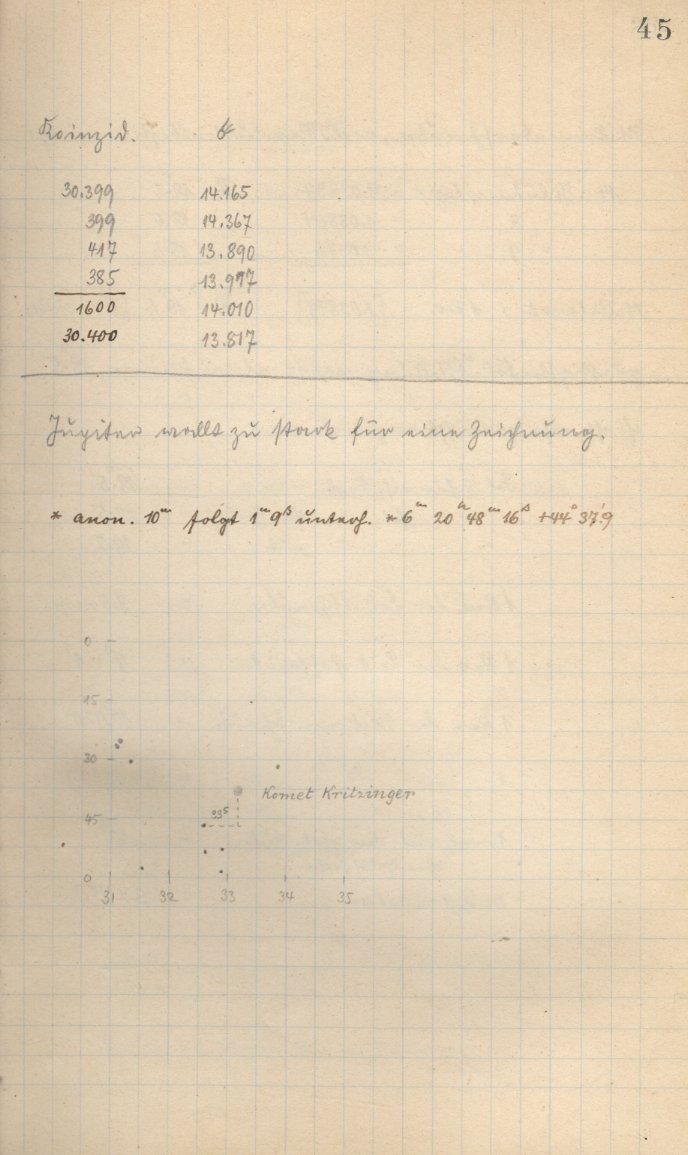 45
Koinzid. ☊
30.399 14.165
399 14.367
417 13.890
385 13.977
1600 14.010
30.400 13.817
Jupiter wallt zu stark für eine Zeichnung.
* anon. 10ᵐ folgt 1ᵐ 9ˢ unterh. * 6ᵐ 20ʰ 48ᵐ 16ˢ +44° 37.'9
0
15
30
Komet Kritzinger
33ˢ
45
0
31 32 33 34 35